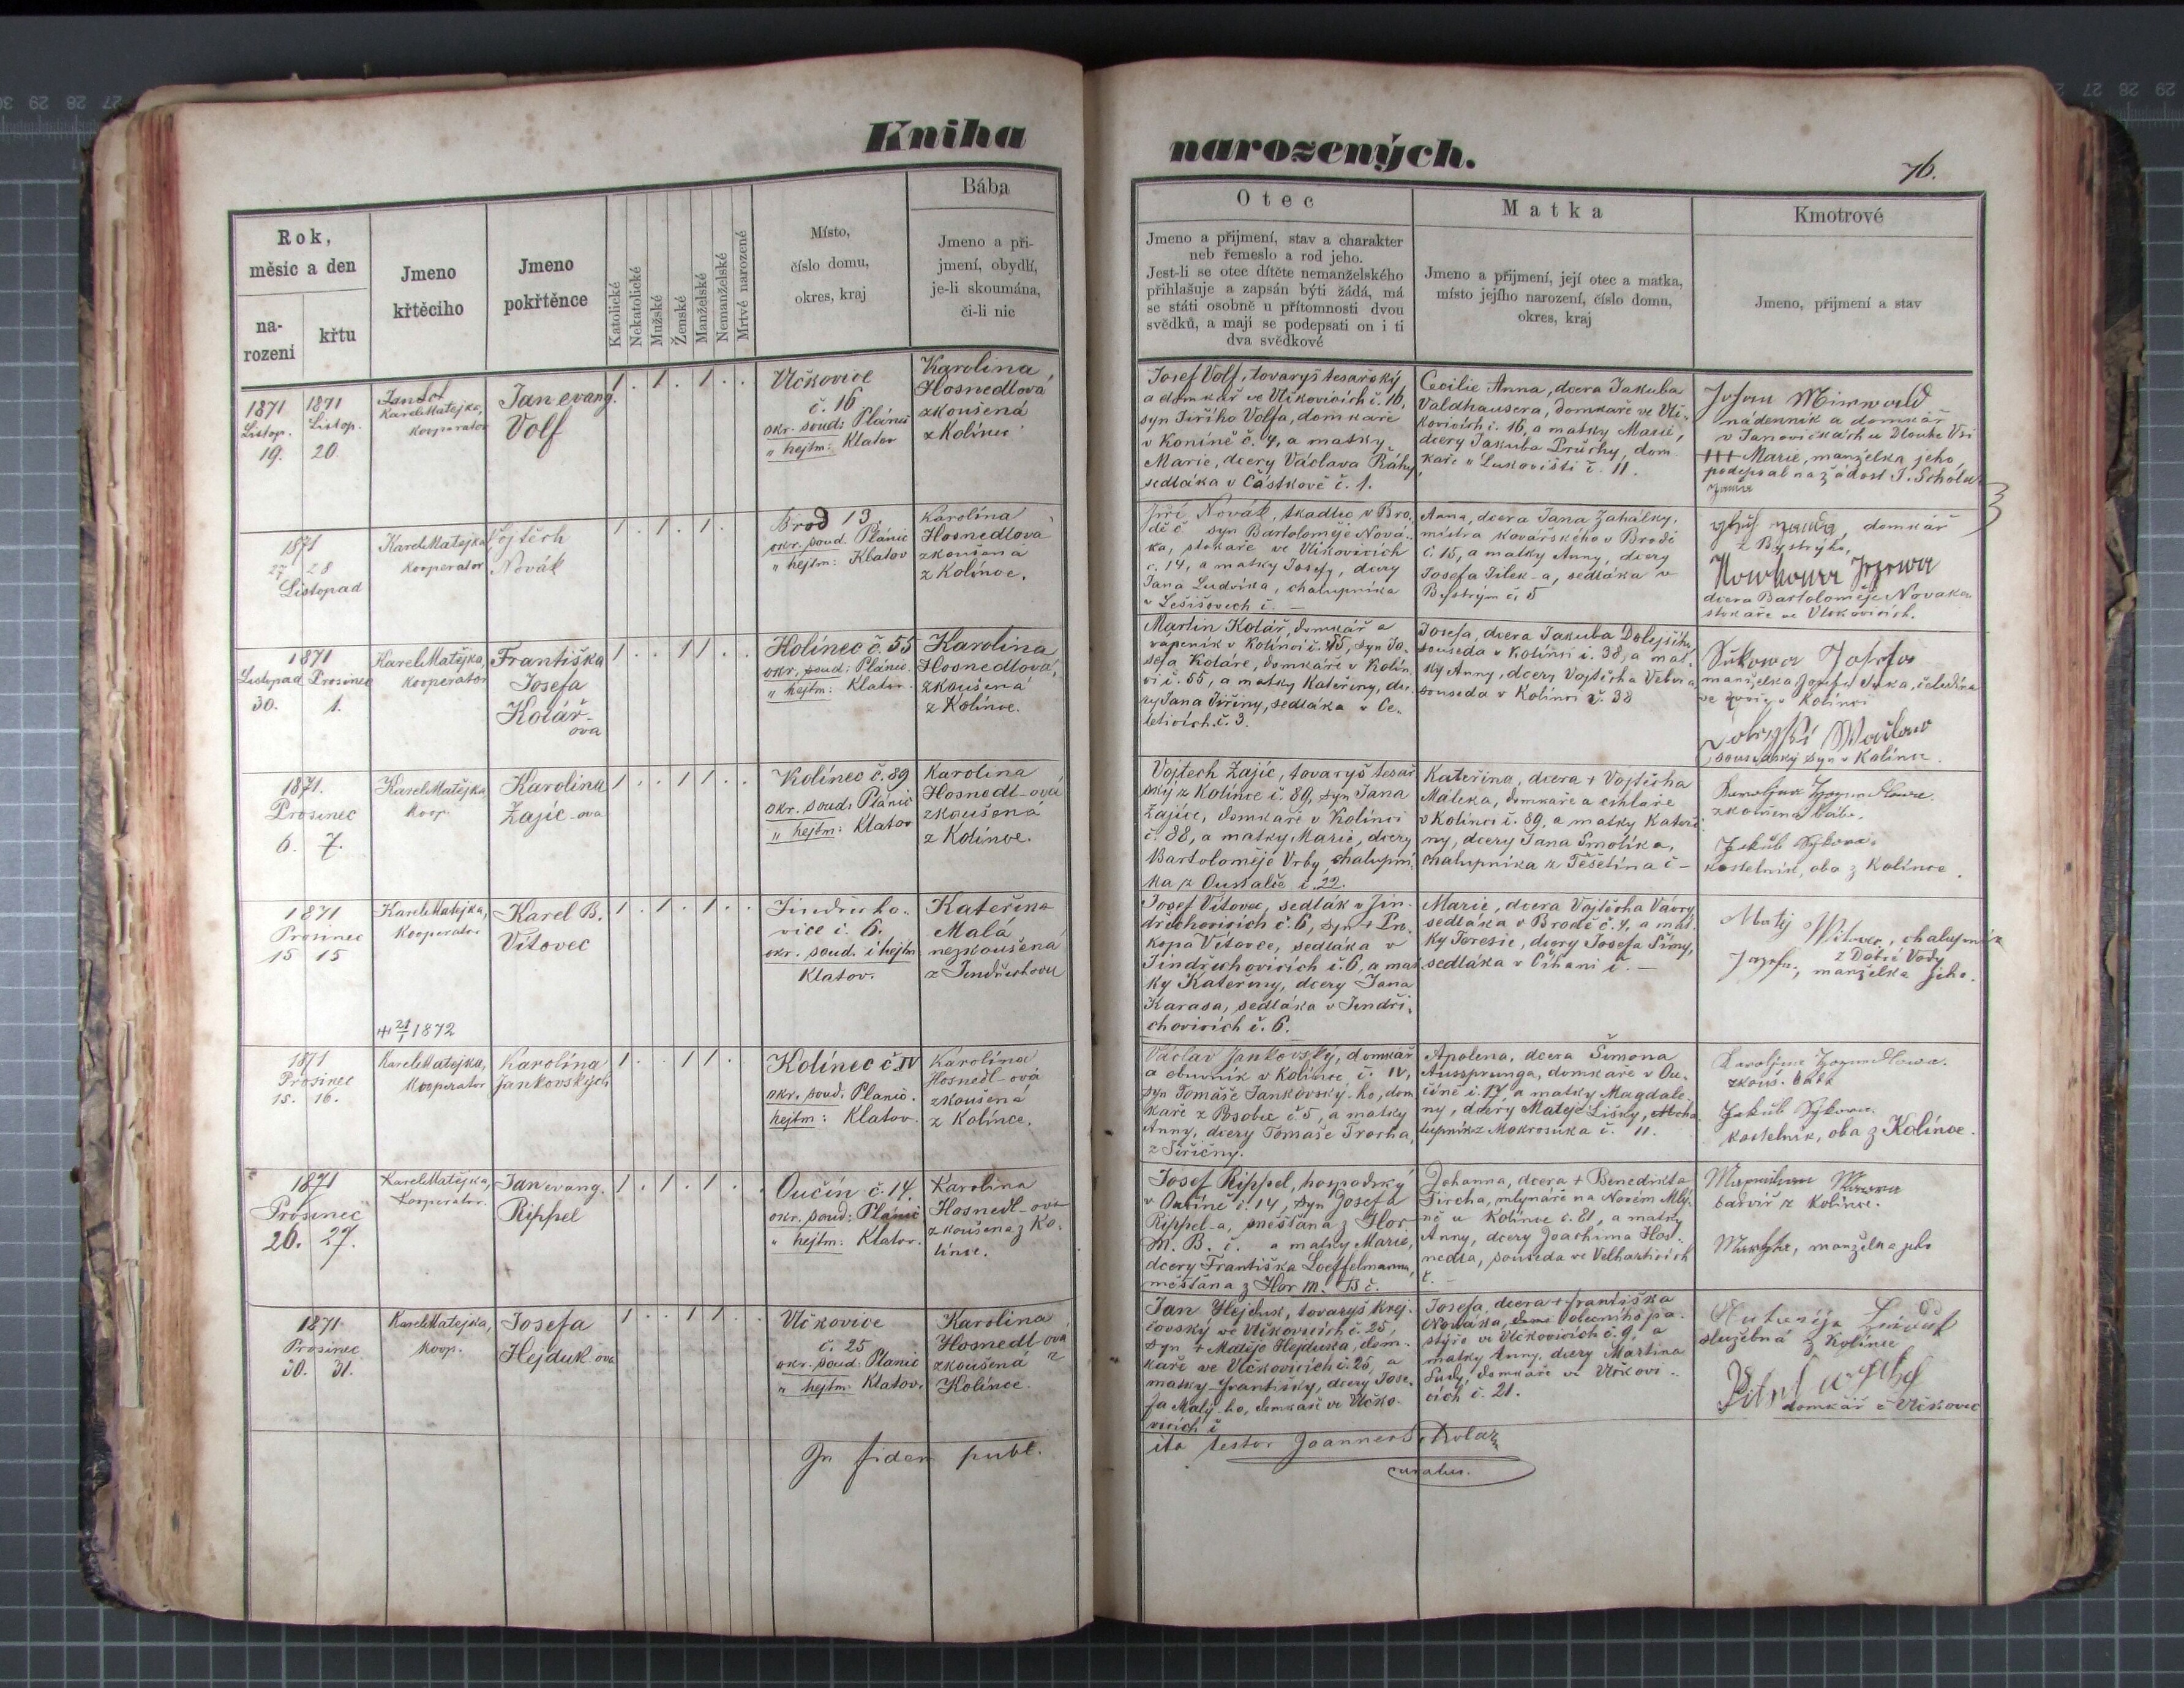 Kniha
narozených.
76.
Rok,
měsíc a den
na-
rození
křtu
Jmeno
křtěcího
Jmeno
pokřtěnce
Katolické
Nekatolické
Mužské
Ženské
Manželské
Nemanželské
Mrtvě narozené
Místo,
číslo domu,
okres, kraj
Bába
Jmeno a při-
jmení, obydlí,
je-li skoumána,
či-li nic
Otec
Jmeno a přijmení, stav a charakter
neb řemeslo a rod jeho.
Jest-li se otec dítěte nemanželského
přihlašuje a zapsán býti žádá, má
se státi osobně u přítomnosti dvou
svědků, a mají se podepsati on i ti
dva svědkové
Matka
Jmeno a přijmení, její otec a matka,
místo jejího narození, číslo domu,
okres, kraj
Kmotrové
Jmeno, přijmení a stav
1871 1871
Listop. Listop.
19. 20.
Karel Matejka,
kooperator
Jan evang.
Volf
1 . 1 . 1 . .
Vlčkovice
č. 16
okr. soud: Plánic
" hejtm: Klatov
Karolina
Hosnedlova
zkoušená
z Kolince
Josef Volf, tovaryš tesařský
a domkář ve Vlčkovicích č. 16,
syn Jiřího Volfa, domkaře
v Koníně č. 4, a matky
Marie, dcery Václava Ráhy
sedláka v Částkově č. 1.
Cecilie Anna, dcera Jakuba
Valdhausera, domkaře ve Vlč-
kovicích č. 16, a matky Marie,
dcery Jakuba Průchy, dom-
kaře v Lukovišti č. 11.
nádenník a domkář
v Janovičkách u Dlouhé Vsi
+++ Marie, manželka jeho,
podepsal na žádost J.
1871
27 28
Listopad
Karel Matejka
kooperator
Vojtěch
Novák
1 . 1 . 1 .
Brod 13
okr. soud. Plánic
" hejtm: Klatov
Karolína
Hosnedlova
zkoušena
z Kolince.
Jiří Novák, tkadlec v Bro-
dě č. syn Bartoloměje Nová-
ka, stokaře ve Vlčkovicích
č. 14, a matky Josefy, dcery
Jana Ludvíka, chalupníka
v Lešišovech č. —
Anna, dcera Jana Zahálky,
mistra kovářského v Brodě
č. 15, a matky Anny, dcery
Josefa Jílek-a, sedláka v
Bystrym č. 5
domkář
z Bystrýho,
dcera Bartoloměje Nováka
stokaře ve Vlčkovicích.
1871
Listopad Prosinec
30. 1.
Karel Matějka,
kooperator
Františka
Josefa
Kolář-
ova
1 . . 1 1 . .
Kolínec č. 55
okr. soud: Plánic
" hejtm: Klatov.
Karolina
Hosnedlová,
zkoušená
z Kolince.
Martin Kolář, domkář a
vápeník v Kolínci č. 55, syn Jo-
sefa Koláře, domkáře v Kolín-
ci č. 55, a matky Kateřiny, dce-
ry Jana Jiřiny, sedláka v Če-
leticích č. 3.
Josefa, dcera Jakuba Dolejšího,
souseda v Kolínci č. 38, a mat-
ky Anny, dcery Vojtěcha
souseda v Kolínci č. 38
manželka Josefa Suka, čeledína
ve dvoře v Kolínci
sousedský syn v Kolínci.
1871.
Prosinec
6. 7.
Karel Matějka,
koop.
Karolina
Zajíc-ova
1 . . 1 1 . .
Kolínec č. 89
okr. soud: Plánic
" hejtm: Klatov
Karolina
Hosnedl-ová
zkoušená
z Kolince.
Vojtech Zajíc, tovaryš tesař-
ský z Kolince č. 89, syn Jana
Zajíce, domkaře v Kolínci
č. 88, a matky Marie, dcery
Bartoloměje Vrby, chalupní-
ka z č. 22.
Kateřina, dcera + Vojtěcha
Málka, domkaře a cihlaře
v Kolínci č. 89, a matky Kateři-
ny, dcery Jana Smolíka,
chalupníka z Těšetína č —
zkoušená bába.
Jakub Sýkora
kostelník, oba z Kolínce.
1871
Prosinec
15 15
Karel Matejka,
kooperator
+ 21/1 1872
Karel B.
Vítovec
1 . 1 . 1 . .
Jindřicho-
vice č. 6.
okr. soud. i hejtm
Klatov.
Kateřina
Mala
nezkoušená
z Jindřichovic
Josef Vítovec, sedlák v Jin-
dřichovicích č. 6, syn + Pro-
kopa Vítovce, sedláka v
Jindřichovicích č. 6, a mat-
ky Kateřiny, dcery Jana
Karasa, sedláka v Jindři-
chovicích č. 6.
Marie, dcera Vojtěcha Vávry
sedláka v Brodě č. 4, a mat-
ky Teresie, dcery Josefa Šímy,
sedláka v Číhani č. —
Matěj Witovec, chalupník
z Dobré Vody
Josefa, manželka jeho.
1871
Prosinec
15. 16.
Karel Matejka,
kooperator
Karolína
Jankovských
1 . . 1 1 .
Kolínec č. IV
okr. soud: Plánic.
hejtm: Klatov.
Karolína
Hosnedl-ová
zkoušená
z Kolínce.
Václav Jankovský, domkář
a obuvník v Kolínec č. IV,
syn Tomáše Jankovský-ho, dom
kaře z Bsobec č. 5, a matky
Anny, dcery Tomáše Trocha,
z Jiřičny.
Apolena, dcera Šimona
Aussprunga, domkaře v Ou-
číně č. 17, a matky Magdale-
ny, dcery Mateje Lišky, cha
lupník z Mokrosuka č. 11.
zkouš. bába
Jakub Sýkora
kostelník, oba z Kolínce.
1871
Prosinec
26. 27.
Karel Matějka,
kooperator.
Jan evang.
Rippel
1 . 1 . 1 . .
Oučín č. 14.
okr. soud: Plánic
" hejtm: Klatov.
Karolina
Hosnedl-ova
zkoušena z Ko-
línce.
Josef Rippel, hospodský
v Oučíně č. 14, syn Josefa
Rippel-a, měšťana z Hor
M. B. č. a matky Marie,
dcery Františka Loeffelmanna,
měšťana z Hor M. B č.
Johanna, dcera + Benedikta
Fircha, mlynáře na Novém Mlý-
ně u Kolínce č. 81, a matky
Anny, dcery Joachima Hos-
nedla, souseda ve Velharticích
č. —
barvíř z Kolínce.
manželka jeho
1871
Prosinec
30. 31.
Karel Matejka,
koop.
Josefa
Hejduk-ova
1 . . 1 1 . .
Vlčkovice
č. 25
okr. soud: Plánic
" hejtm: Klatov.
Karolina
Hosnedl-ová
zkoušená z
Kolínce.
Jan Hejduk, tovaryš krej-
čovský ve Vlčkovicích č. 25,
syn + Matěje Hejduka, dom-
kaře ve Vlčkovicích č. 25, a
matky Františky, dcery Jose-
fa Malý-ho, domkaře ve Vlčko-
vicích č
Josefa, dcera + Františka
Nováka, obecního pa-
stýře ve Vlčkovicích č. 9, a
matky Anny, dcery Martina
Sudy, domkaře ve Vlčkovi-
cích č. 21.
služebná z Kolínce
domkář z Vlčkovic
In fidem publ.
ita testor Joannes Kolar
curatus.